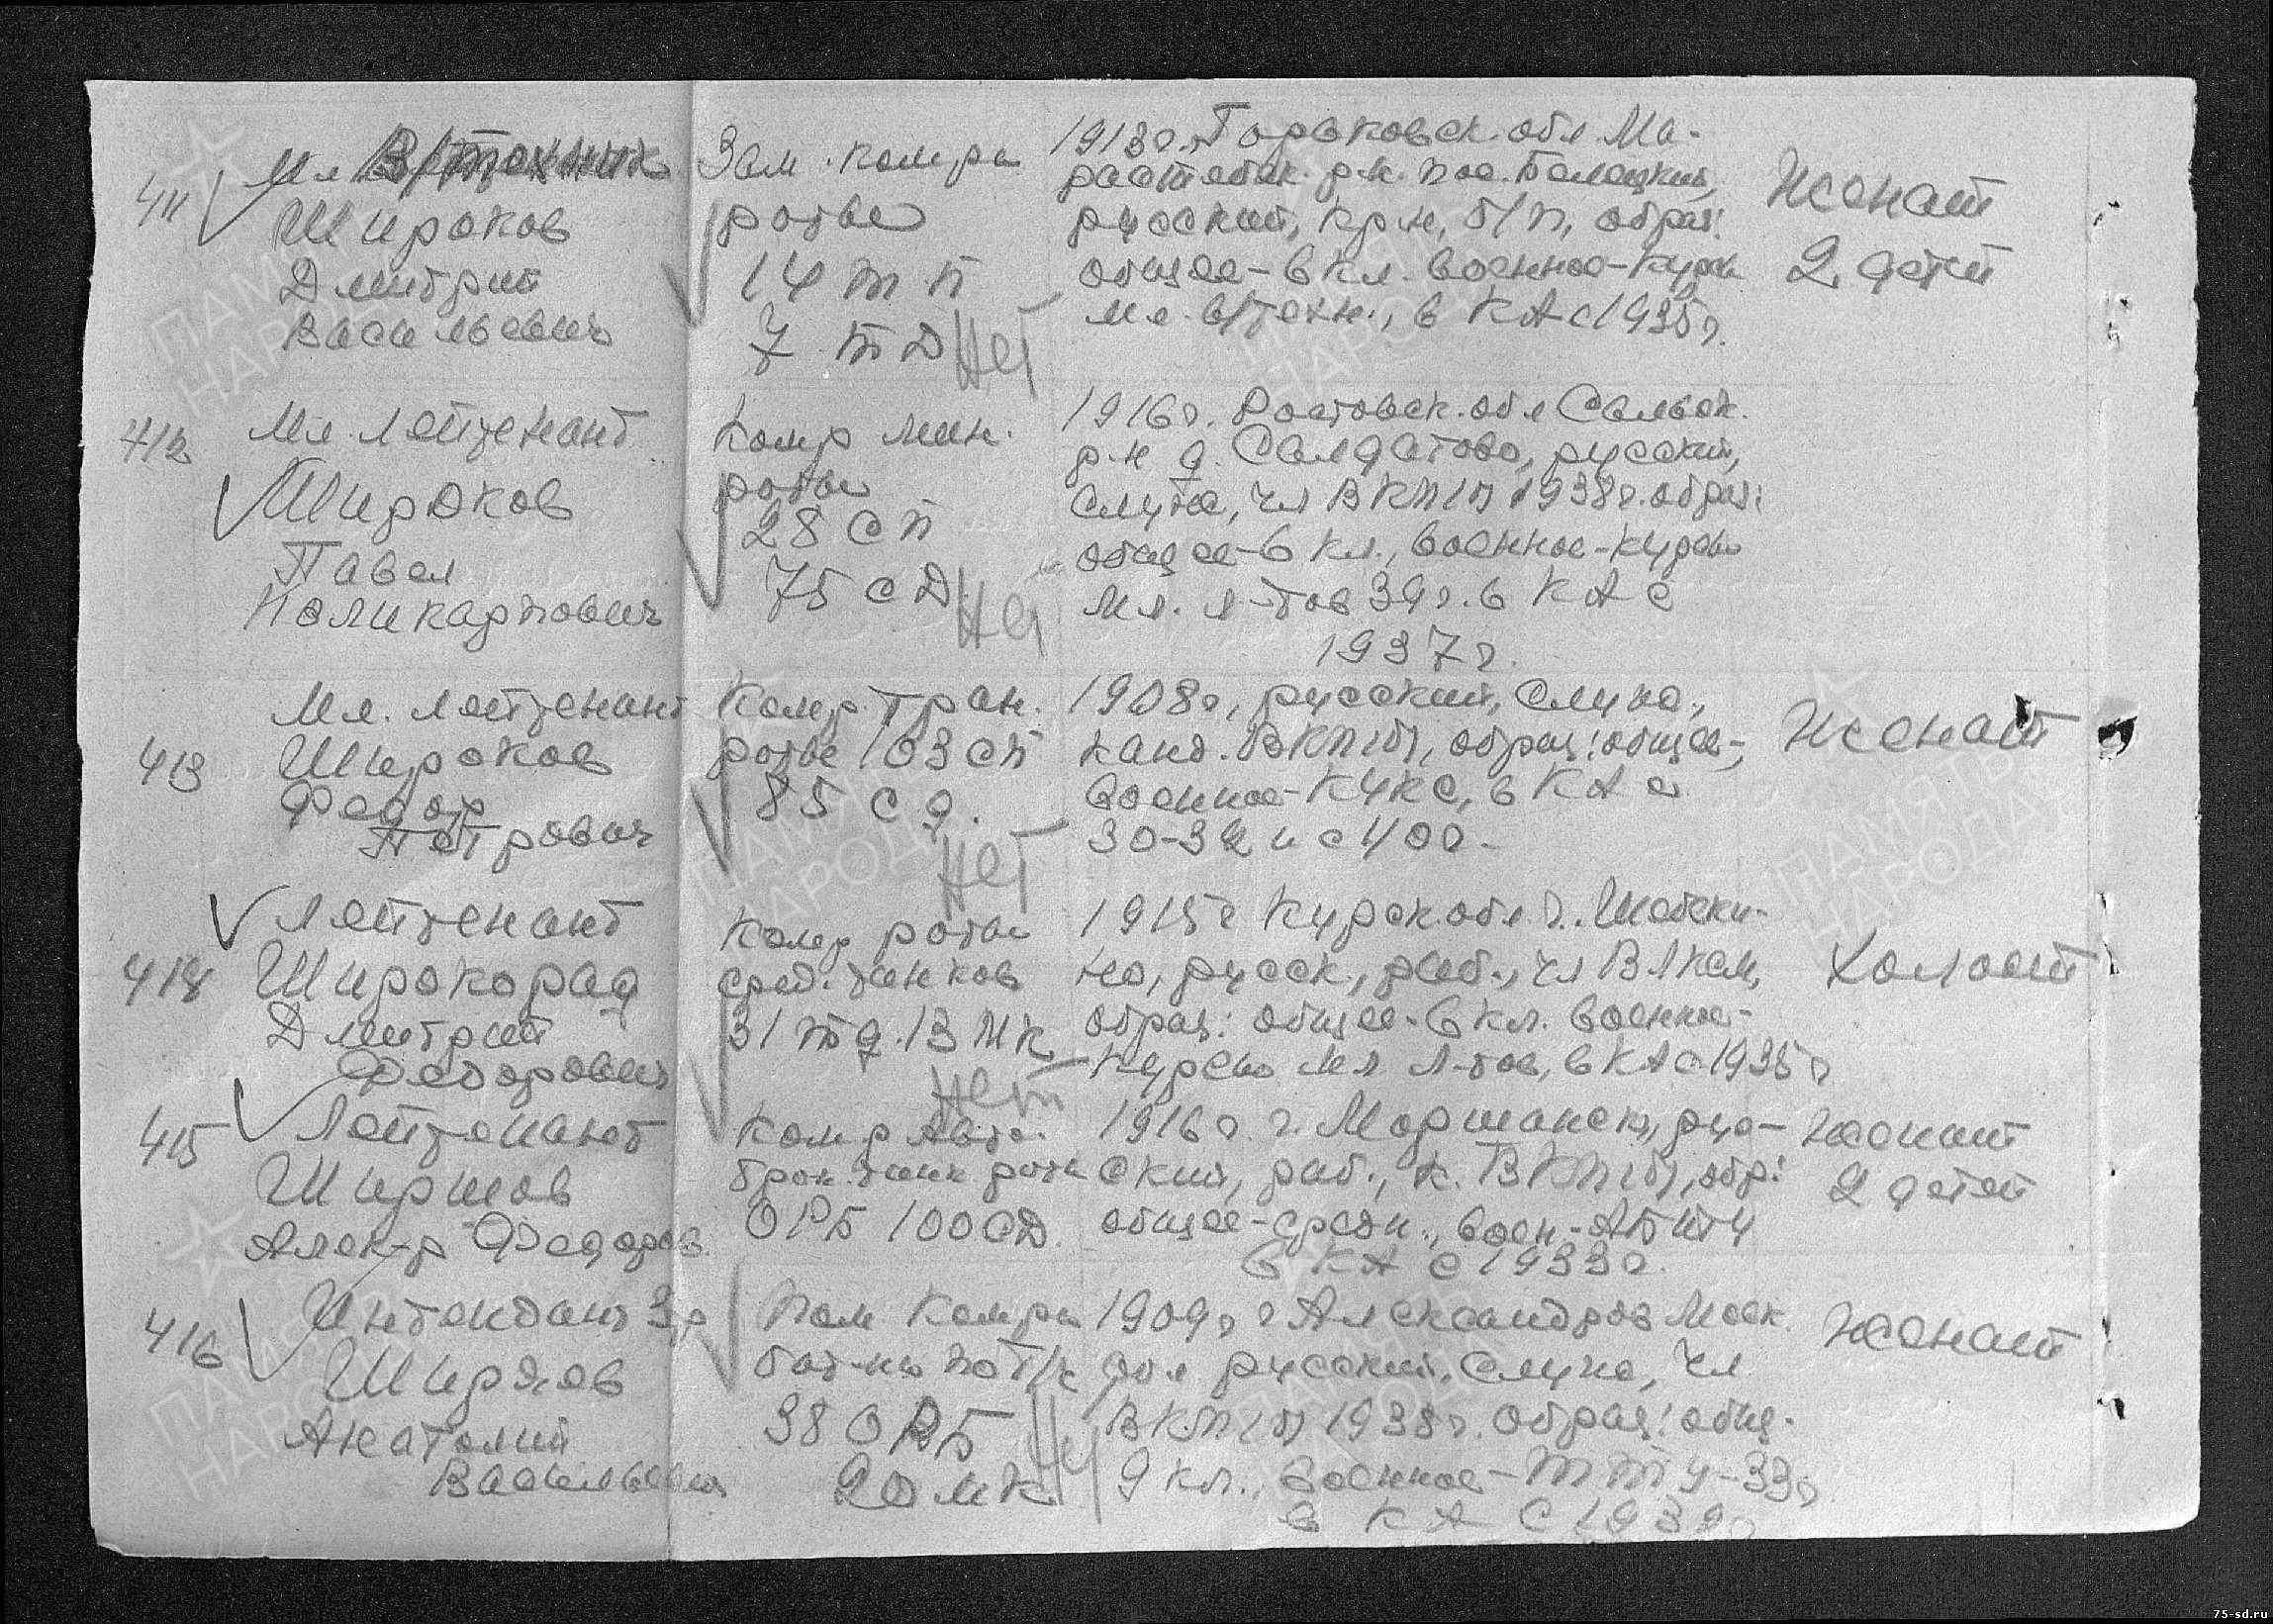 411
Мл В/техник
Широков
Дмитрий
Васильевич
Зам. комра
роты
14 тп
7 тд
Нет
1913г., Горьковск. обл. Ма-
р.н. пос.
русский, кр-н, б/п, образ:
общее – 6 кл. военное – курсы
мл. в/техн., в КА с 1935г.
Женат
2 детей
412
Мл. лейтенант
Широков
Павел
Поликарпович
Комр мин.
роты
28 сп
75 сд
Нет
1916г. Ростовск. обл Сальск.
р-н д. Салдатово, русский,
служ, чл ВКП(б) 1938г. образ:
общее – 6 кл., военное – курсы
мл. л-тов 39г. в КА с
1937г.
413
Мл. лейтенант
Широков
Федор
Петрович
Комр. тран.
роты 103 сп
85 сд.
Нет
1908г., русский, служ.,
канд. ВКП(б), образ: общее –,
военное – КУКС, в КА с
30–32 и с 40г.
Женат
414
Лейтенант
Широкорад
Дмитрий
Федорович
Комр роты
сред. танков
31 тд. 13 МК
Нет
1915г Курск. обл. г. Шебеки-
но, русск., раб., чл ВЛКСМ,
образ: общее – 6 кл. военное –
курсы мл л-тов, в КА с 1935г
Холост
415
Лейтенант
Ширшов
Алек-р Федоров
Комр Авто.
брон. танк роты
ОРБ 100 СД
1916г. г. Моршанск, рус-
ский, раб., к. ВКП(б), обр:
общее – средн., воен –
в КА с 1933г.
женат
2 детей
416
Интендант 3 р
Ширяев
Анатолий
Васильевич
Пом Комра
бат-на по т/ч
38 ОРБ
20 мк
1909г г Александров Моск.
обл русский, служ, чл
ВКП(б) 1938г. образ: общ-
9 кл., военное – ТТУ – 33г
в КА с 193
женат
ПАМЯТЬ
НАРОДА
75-sd.ru